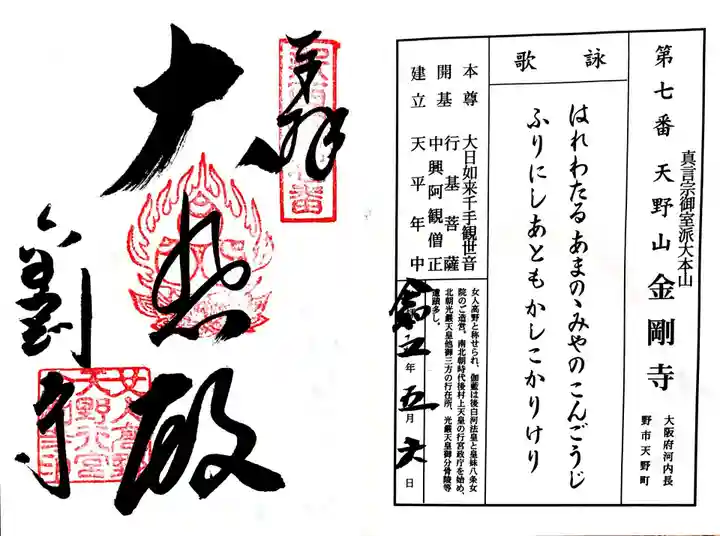 真言宗御室派大本山
第七番 天野山 金剛寺
大阪府河内長
野市天野町
詠歌
はれわたるあまのゝみやのこんごうじ
ふりにしあともかしこかりけり
本尊 大日如来千手観世音
開基 行基菩薩
中興阿観僧正
建立 天平年中
女人高野と称せられ、伽藍は後白河法皇と皇妹八条女
院のご造営。南北朝時代後村上天皇の行宮政庁を始め、
北朝光厳天皇他御三方の行在所、光厳天皇御分骨陵等
遺蹟多し。
年五月六日
奉拝
大悲殿
金剛寺
女人高野
天野行宮